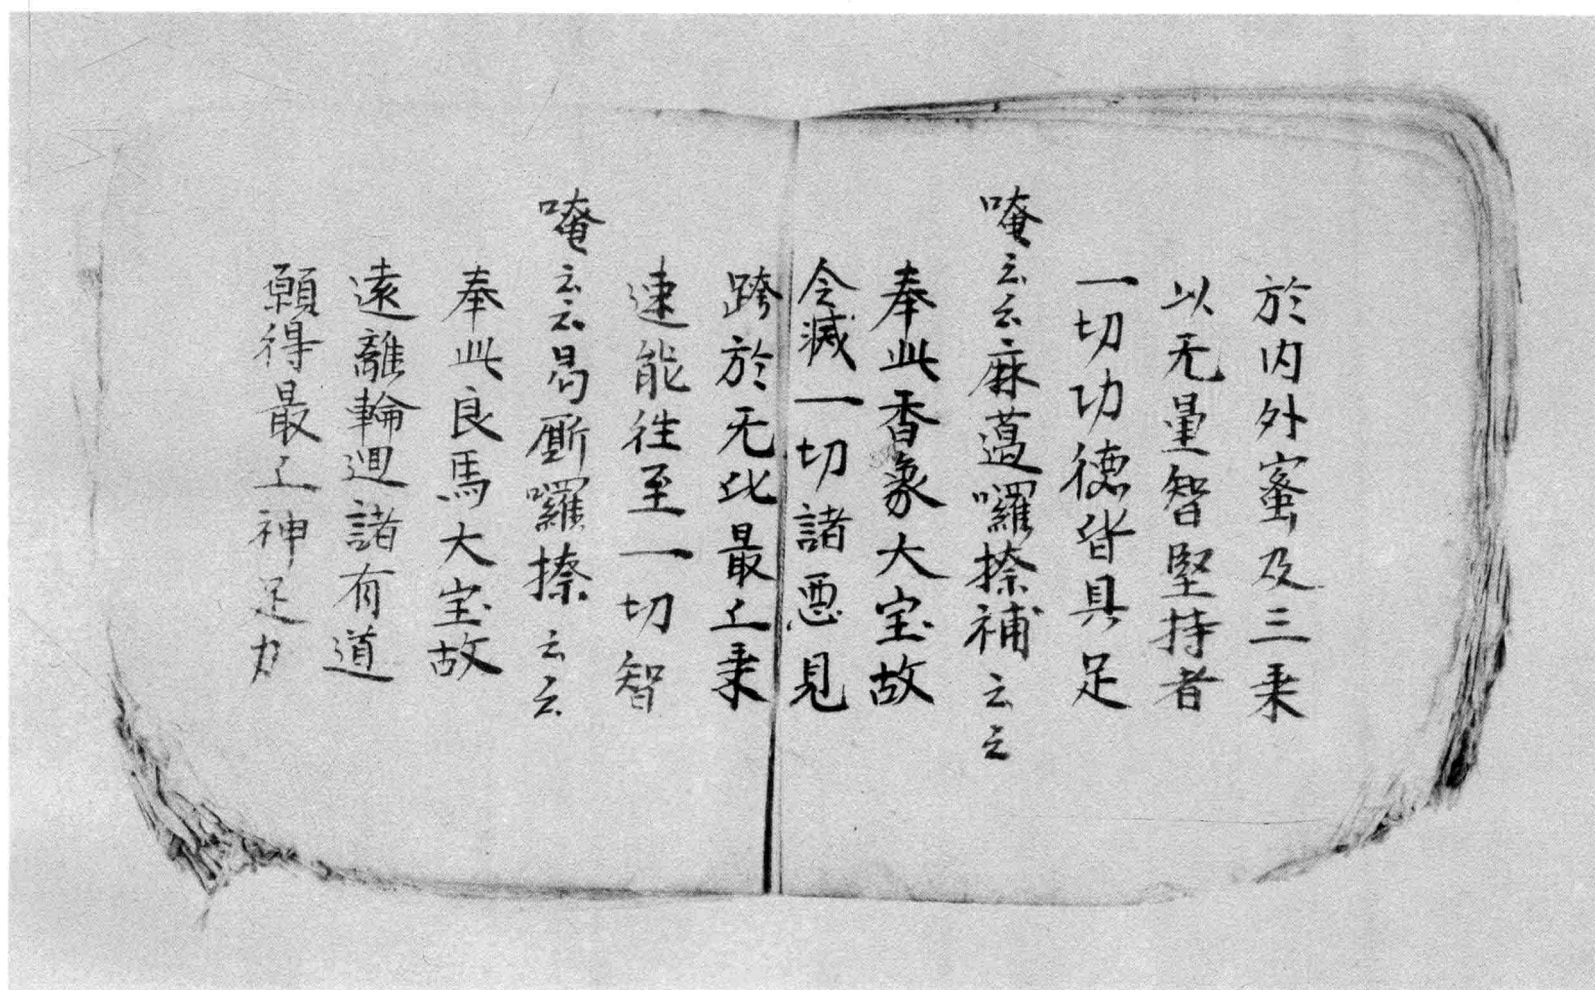 於内外蜜及三乗
以无量智堅持者
一切功德皆具足
唵云云麻蘯囉捺補云云
奉此香象大宝故
令滅一切諸悪見
跨於无比最上乗
速能往至一切智
唵云云曷厮囉捺云云
奉此良馬大宝故
遠離輪迴諸有道
願得最上神足力